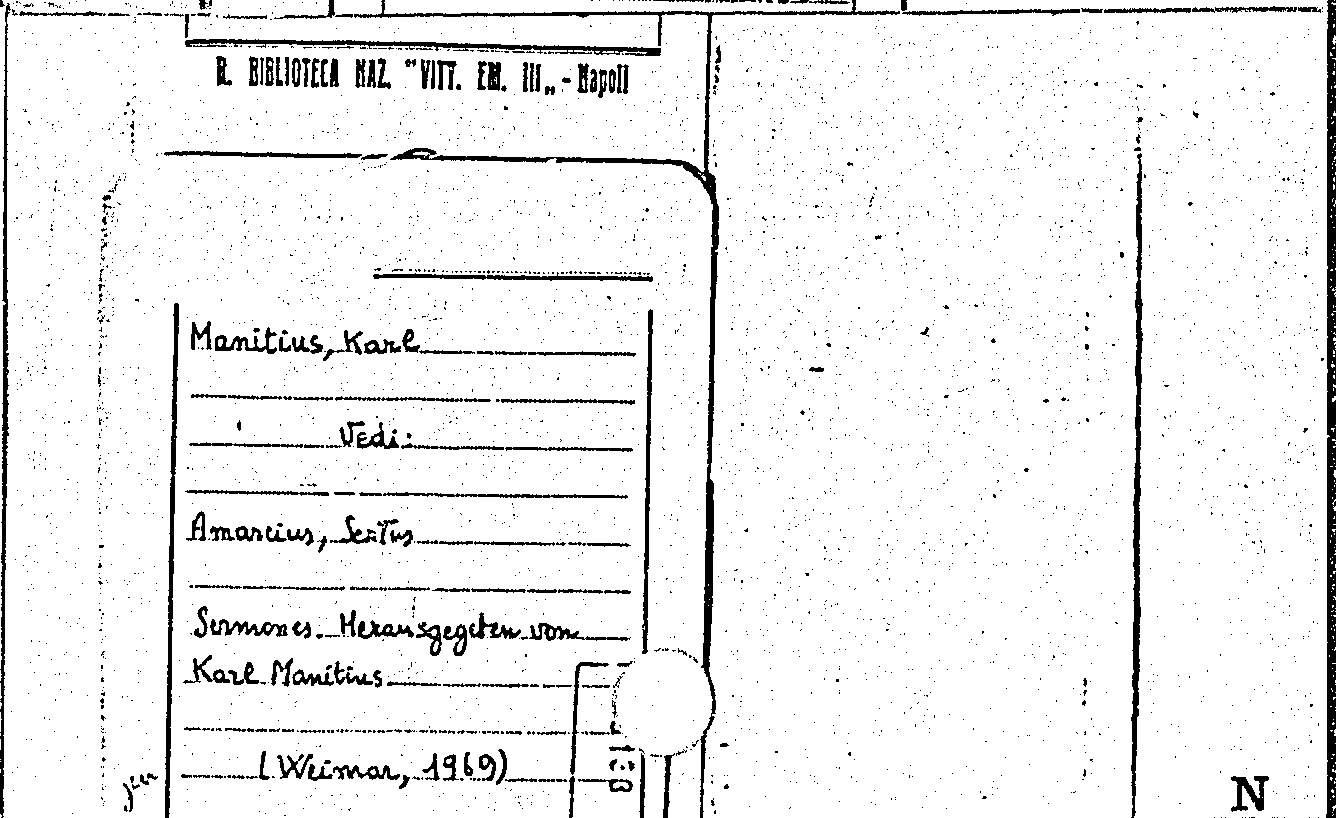 R. BIBLIOTECA NAZ. "VITT. EM. III„ - Napoli
Manitius, Karl
Vedi:
Amarcius, Sextus
Sermones. Herausgegeten von
Karl Manitius
(Weimar, 1969)
N